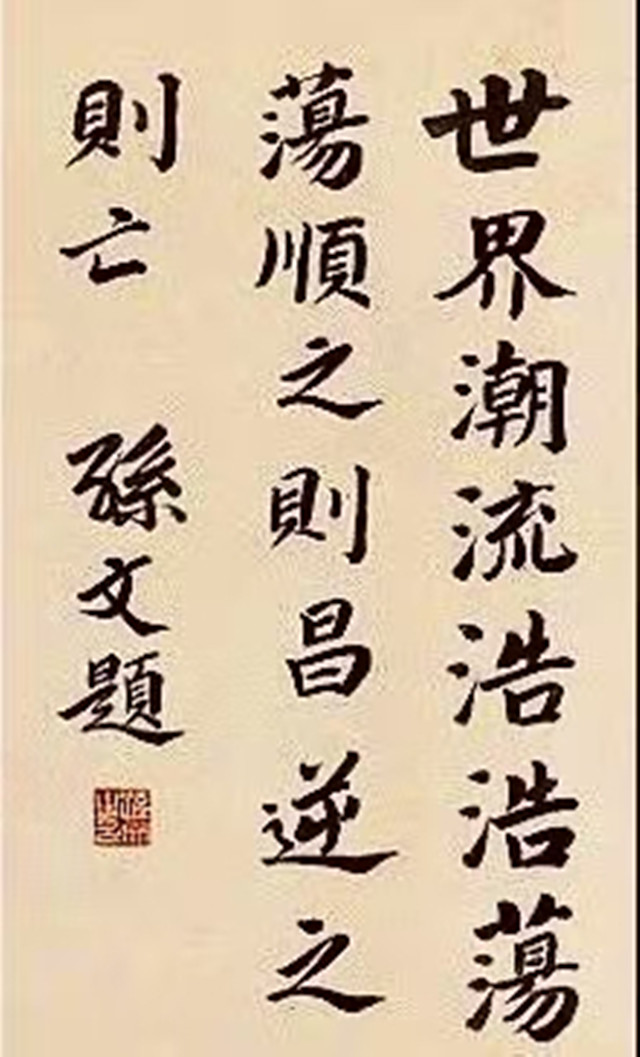 世界潮流浩浩蕩
蕩順之則昌逆之
則亡 孫文題